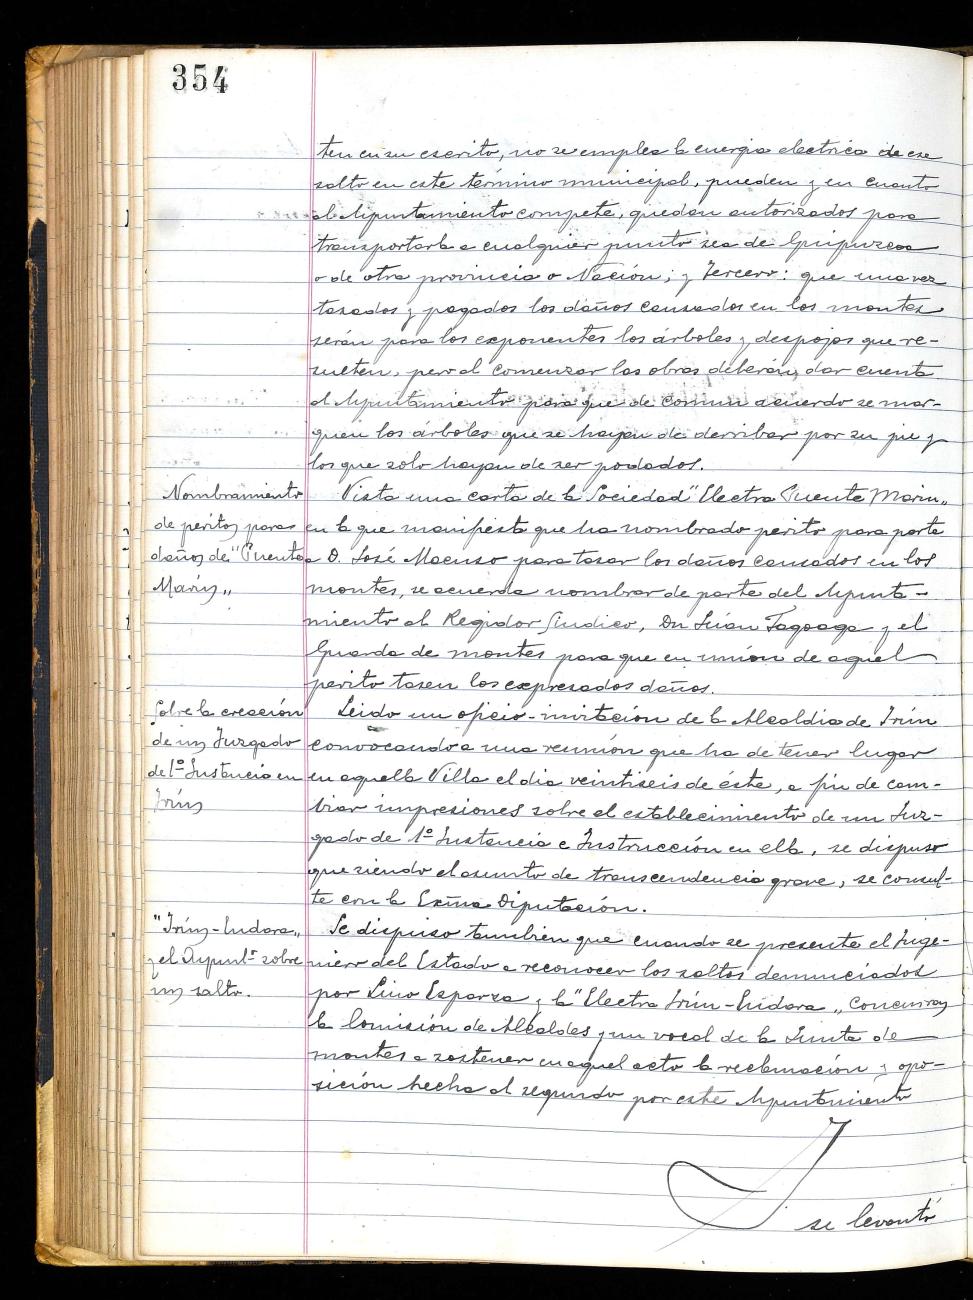 354
ten en su escrito, no se emplea la energia electrica de ese
salto en este término municipal, pueden y en cuanto
al Ayuntamiento compete, quedan autorizados para
transportarla a cualquier punto sea de Guipuzcoa
o de otra provincia o Nación; y Tercero: que una vez
tasados y pagados los daños causados en los montes
serán para los exponentes los árboles y despojos que re-
sulten, pero al comenzar las obras deberán dar cuenta
al Ayuntamiento para que de comun acuerdo se mar-
quen los árboles que se hayan de derribar por su pie y
los que solo hayan de ser podados.
Nombramiento
de peritos para
daños de "Puente
Marín„
Vista una carta de la Sociedad "Electra Puente Marin„
en la que manifiesta que ha nombrado perito para parte
a D. José Macuso para tasar los daños causados en los
montes, se acuerda nombrar de parte del Ayunta-
miento al Regidor Sindico, Dn Juán Tagoaga y el
Guarda de montes para que en unión de aquel
perito tasen los expresados daños.
Sobre la creación
de un Juzgado
de 1ª Instancia en
Irún
Leido un oficio-invitación de la Alcaldia de Irún
convocando a una reunión que ha de tener lugar
en aquella Villa el dia veintiseis de éste, a fin de cam-
biar impresiones sobre el establecimiento de un Juz-
gado de 1ª Instancia e Instrucción en ella, se dispuso
que siendo el asunto de transcendencia grave, se consul-
te con la Exma Diputación.
"Irún-Endara„
y el Ayuntº sobre
un salto.
Se dispuso también que cuando se presente el Inge-
niero del Estado a reconocer los saltos denunciados
por Lino Esparza y la "Electra Irún-Endara„ concurran
la Comisión de Alcaldes y un vocal de la Junta de
montes a sostener en aquel acto la reclamación y opo-
sición hecha al segundo por este Ayuntamiento
Y
se levantó